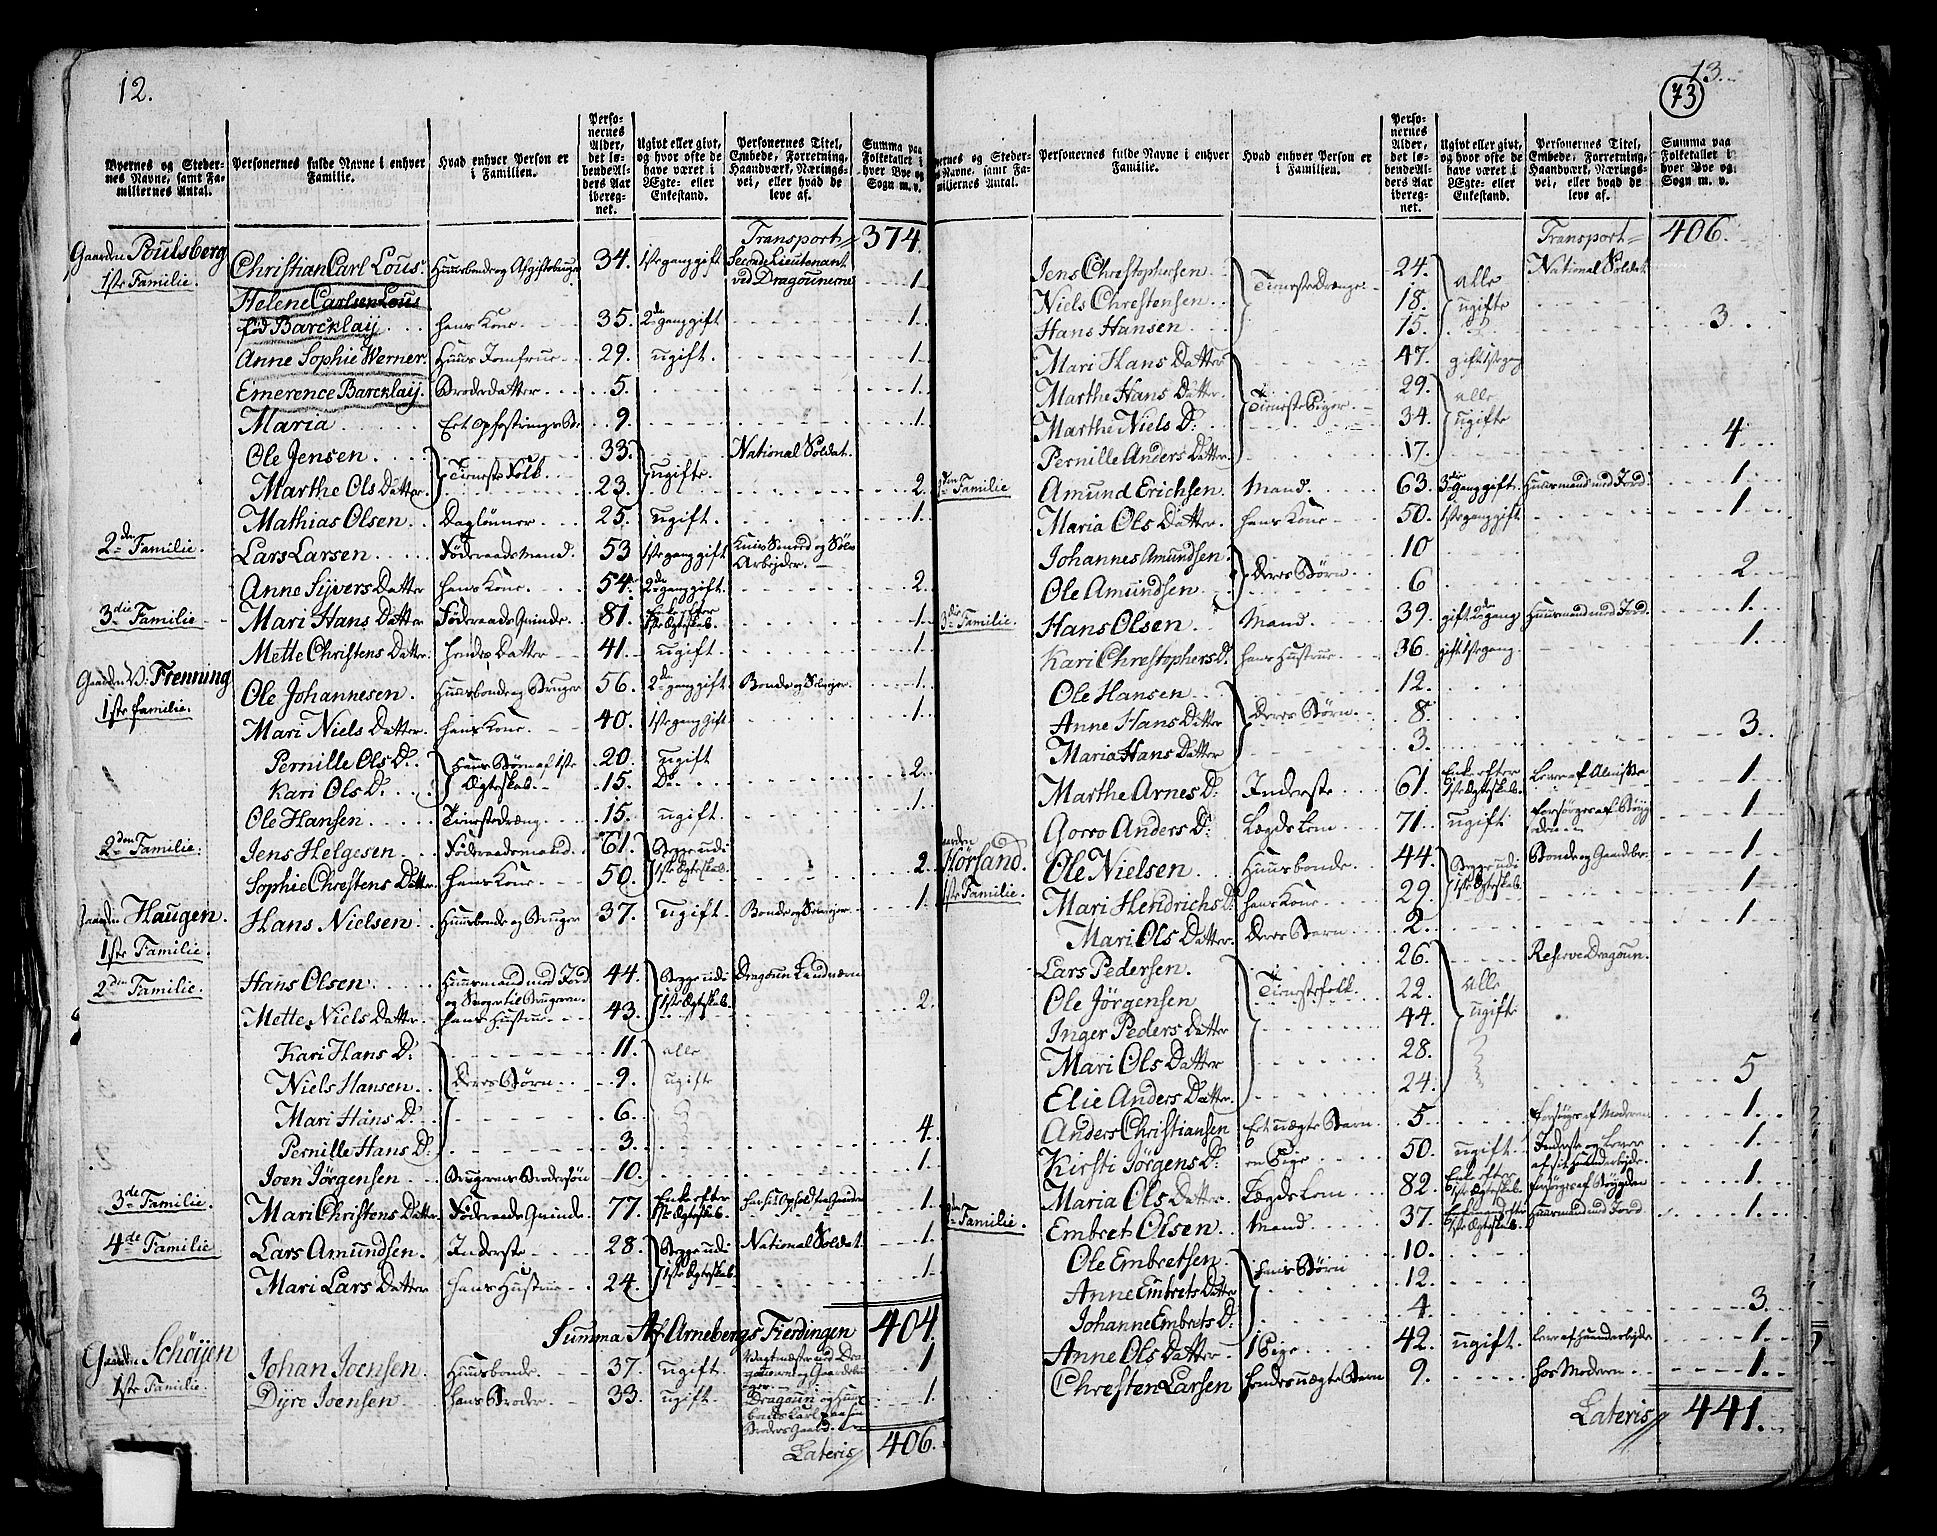 12.
Byernes og Steder-
nes Navne, samt Fa-
miliernes Antal.
Personernes fulde Navne i enhver
Familie.
Hvad enhver Person er
i Familien.
Perso-
nernes
Alder,
det lø-
bende Al-
ders Aar
ibereg-
net.
Ugivt eller givt,
og hvor ofte de
have været i
Ægte- eller
Enkestand.
Personernes Titel,
Embede, Forretning,
Haandværk, Nærings-
vei, eller hvad de
leve af.
Summa paa
Folketallet i
hver Bye og
Sogn m. v.
Transport 374
Gaarden Poulsberg
1ste Familie. Christian Carl Lous Huusbonde og Afgiftsbruger 34. 1ste gang gift Second Lieutenant
ved Dragounerne 1.
Helene Carlsen Lous
fød Barcklaij hans Kone 35. 2den gang gift 1.
Anne Sophie Werner. Huus Jomfrue 29. ugift. 1.
Emerence Barcklaij. Broderdatter 5. 1.
Maria Et opfostrings B. 9. 1.
Ole Jensen. Tieneste Folk 33. ugifte. National Soldat.
Marthe Ols Datter. 23. 2.
Mathias Olsen. Daglønner. 25. ugift. 1.
2den Familie. Lars Larsen Föderaadsmand. 53 1ste gang gift Knivsmed og Sölv
Arbejder.
Anne Sijvers Datter hans Kone. 54. 2den gang gift. 2.
3die Familie Mari Hans Datter Föderaads Qvinde. 81. Enke efter
1ste Ægteskab. 1.
Mette Christens Datter. hendes Datter 41. ugift. 1.
Gaarden V: Frenning
1ste familie. Ole Johannesen. Huusbonde og Bruger 56. 2den gang gift Bonde og 1.
Mari Niels Datter. hans Kone. 40. 1ste gang gift 1.
Pernille Ols D. hans Börn af 1ste 20. ugift
Kari Ols D. Ægteskab. 15. Do. 2.
Ole Hansen Tienestedreng. 15. ugift. 1.
2den Familie. Jens Helgesen Föderaadsmand. 61. Begge udi
Sophie Chrestens Datter. hans Kone 50. 1ste Ægteskab. 2.
Gaarden Haugen.
1ste Familie. Hans Nielsen Huusbonde og Bruger 37. ugift Bonde og 1.
2den Familie. Hans Olsen Huusmand med Jord 44. Begge udi Dragoun
Mette Niels Datter. hans Hustrue 43. 1ste Ægteskab. 2.
Kari Hans D. 11. alle
Niels Hansen. Deres Börn. 9. ugift
Mari Hans D. 6.
Pernille Hans D. 3. 4.
Joen Jörgensen Brugerens Brodersön 10. 1.
3de Familie. Mari Christens Datter. Föderaads Qvinde. 77. Enke efter
1ste Ægteskab. har sit Ophold fra Gaarden 1.
4de Familie Lars Amundsen. Inderste 28. Begge udi National Soldat 1.
Mari Lars Datter hans Hustrue 24. 1ste Ægteskab. 1.
Summa Af Arnebergs Fierdingen 404.
Gaarden Schöijen
1ste Familie. Johan Joensen. Huusbonde. 37. ugift 1
Dijre Joensen hans Broder 33. ugift 1.
Lateris 406.
13.
73
Byernes og Steder-
nes Navne, samt Fa-
miliernes Antal.
Personernes fulde Navne i enhver
Familie.
Hvad enhver Person er
i Familien.
Perso-
nernes
Alder,
det lø-
bende Al-
ders Aar
ibereg-
net.
Ugivt eller givt,
og hvor ofte de
have været i
Ægte- eller
Enkestand.
Personernes Titel,
Embede, Forretning,
Haandværk, Nærings-
vei, eller hvad de
leve af.
Summa paa
Folketallet i
hver Bye og
Sogn m. v.
Transport 406.
Jens Chrestophersen 24. alle National Soldat
Niels Chrestensen Tieneste Drenge 18. ugifte
Hans Hansen 15. 3.
Mari Hans Datter 47. gift 1ste gang
Marthe Hans Datter. Tieneste Piger. 29. alle
Marthe Niels D. 34. ugifte
Pernille Anders Datter. 17. 4.
2den Familie Amund Erichsen. Mand. 63. 3die gang gift. Huusmand med Jord 1.
Maria Ols Datter. hans Kone 50. 1ste gang gift 1.
Johannes Amundsen. 10
Ole Amundsen. Deres Börn. 6 2.
3die Familie. Hans Olsen Mand. 39. gift 2den gang Huusmand med Jord. 1.
Kari Chrestophers D. hans Hustrue 36. gift 1ste gang 1.
Ole Hansen 12.
Anne Hans Datter Deres Börn. 8.
Maria Hans Datter 3. 3.
Marthe Arnes D. Inderste 61. Enke efter
1ste Ægteskab. Lever af Almisse 1.
Gorro Anders D. Lægdslem 71. ugift forsörges af Bÿg
den 1.
Gaarden Horsand.
1ste Familie. Ole Nielsen Huusbonde. 44. Begge udi Bonde og Gaardbr. 1.
Mari Hendrichs D. hans Kone 29. 1ste Ægteskab. 1.
Mari Ols Datter. Deres Barn 2. 1.
Lars Pedersen. 26. Reserve Dragoun.
Ole Jörgensen Tienestefolk 22. alle
Inger Peders Datter 44. ugifte
Mari Ols Datter 28.
Elie Anders Datter. 24. 5
Anders Christiansen Et uægte Barn. 5. forsörges af Moderen 1.
Kirsti Jörgens D. en Pige 50. ugift. Inderste og lever
af sit Haandarbejde. 1.
Maria Ols Datter. Lægdslem 82. Enke efter
1ste Ægteskab. forsörges af Bÿgden 1.
2den Familie. Embret Olsen. Mand 37. Enkemand efter
1ste Ægteskab. Huusmand med Jord 1.
Ole Embretsen. 10.
Anne Embrets Datter hans Börn 12.
Johanne Embrets D. 4 3.
Anne Ols Datter. 1 Pige 42. ugift. Lever af Haandarbejde 1.
Chresten Larsen hendes uægte Barn 9. hos Moderen 1.
Lateris 441.